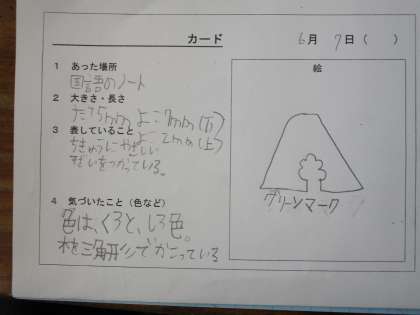 カード
6月 7日( )
1 あった場所
国語のノート
2 大きさ・長さ
たて5mm よこ7mm(下)
3 表していること よこ2mm(上)
ちきゅうにやさしい
をつかっている。
4 気づいたこと(色など)
色は、くろと、しろ色。
木を三角形でかこっている
絵
グリーンマーク